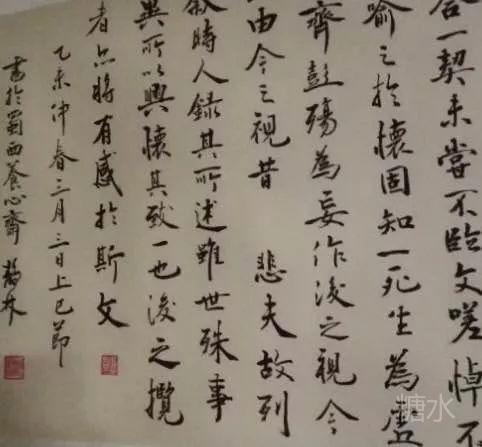 合一契未嘗不臨文嗟悼不
喻之於懷固知一死生為虛
齊彭殤為妄作後之視今
由今之視昔 悲夫故列
敘時人錄其所述雖世殊事
異所以興懷其致一也後之攬
者亦將有感於斯文
乙未仲春三月三日上巳節
書於蜀西養心齋
糖水